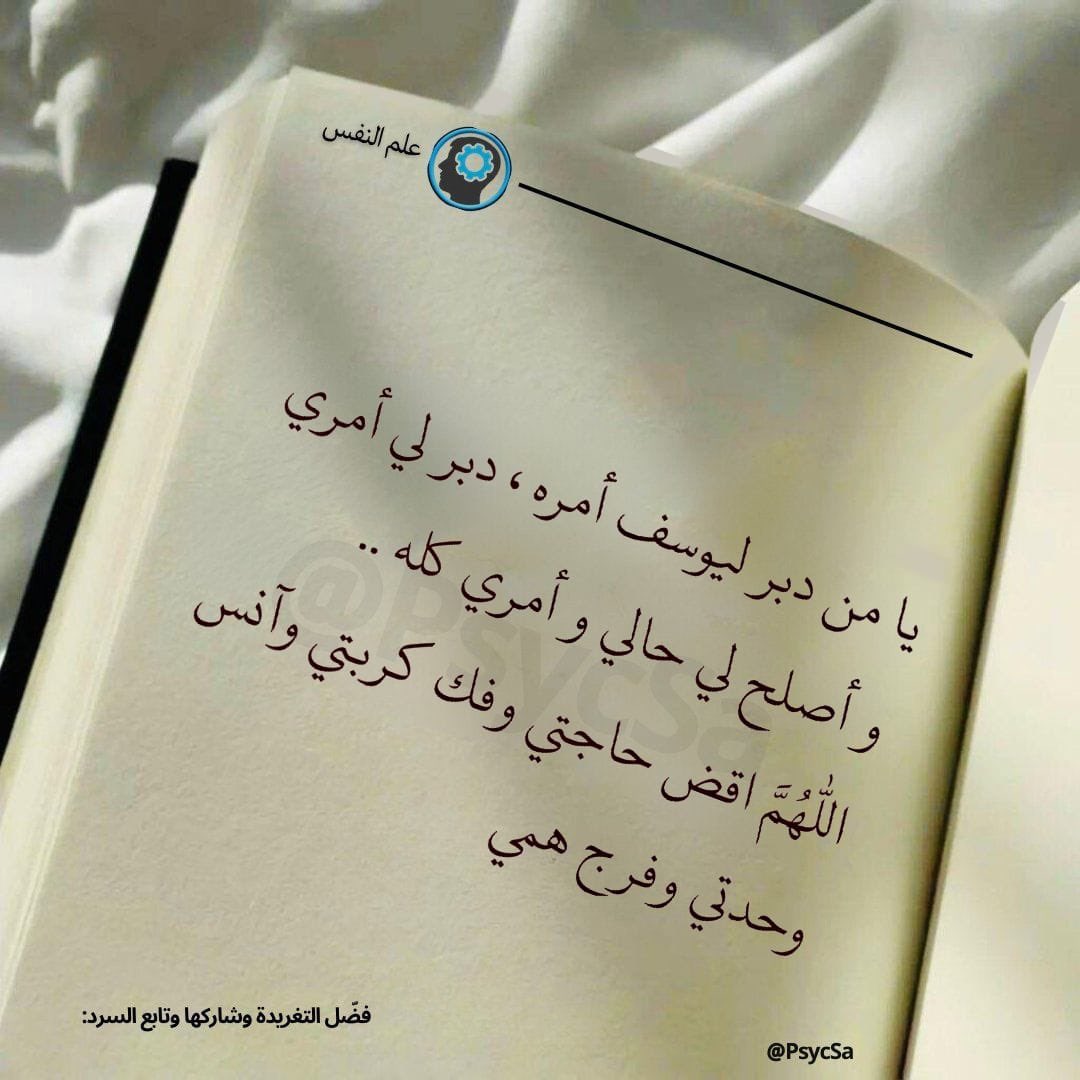 علم النفس
يا من دبر ليوسف أمره، دبر لي أمري
و أصلح لي حالي و أمري كله ..
اللّٰهُمَّ اقض حاجتي وفك كربتي وآنس
وحدتي وفرج همي
@PsycSa
فضّل التغريدة وشاركها وتابع السرد:
@PsycSa